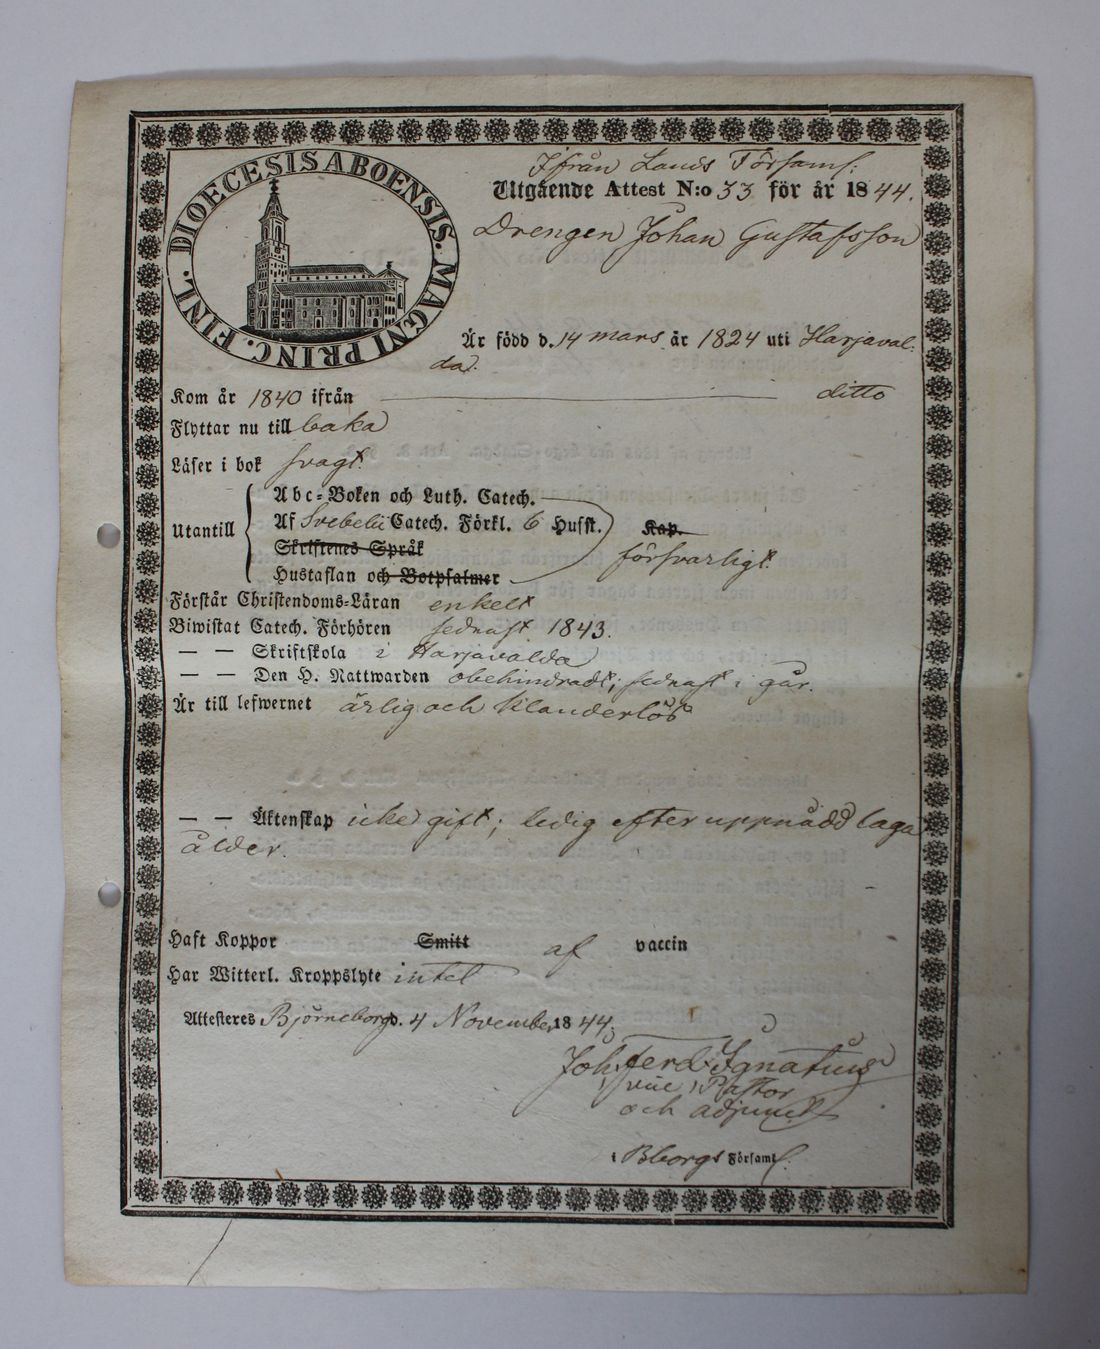 DIOECESIS ABOENSIS. MAGNI PRINC. FINL.
Ifrån Lands Församl.
Utgående Attest N:o 33 för år 1844.
Drengen Johan Gustafsson
Är född d. 14 mars år 1824 uti Harjaval-
da.
Kom år 1840 ifrån ditto
Flyttar nu till baka
Läser i bok svagt.
Utantill
Abc-Boken och Luth. Catech.
Af Svebelii Catech. Förkl. 6 Hufst. Kap.
Skriftenes Språk försvarligt.
Hustaflan och Botpsalmer
Förstår Christendoms-Läran enkelt
Biwistat Catech. Förhören sednast 1843.
— — Skriftskola i Harjavalda
— — Den H. Nattwarden obehindradt; sednast i går.
Är till lefwernet ärlig och klanderlös
— — Äktenskap icke gift; ledig efter uppnådd laga
ålder.
Haft Koppor Smitt af vaccin
Har Witterl. Kroppslyte intet
Attesteres Björneborg d. 4 November 1844.
Joh. Ferd. Ignatius
vice Pastor
och adjunct
i Bborgs Församl.